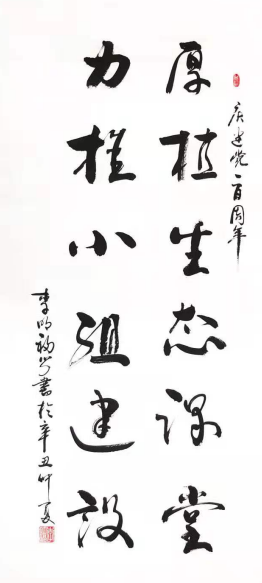 庆建党一百周年
厚植生态课堂
力推小组建设
李明福書於辛丑仲夏